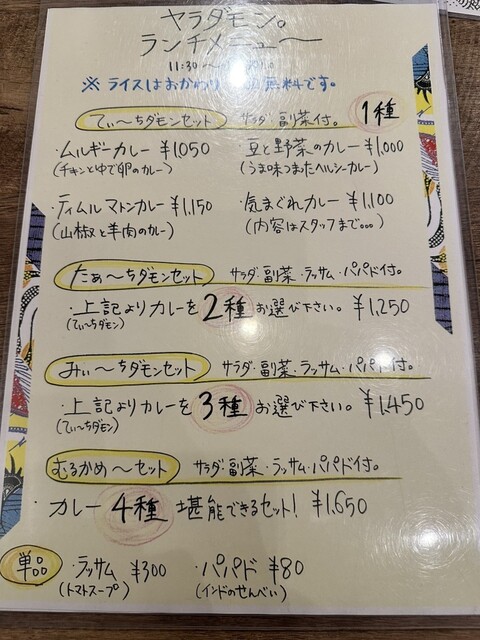 ヤラダモン。
ランチメニュ〜
11:30〜
※ ライスはおかわり 無料です。
てぃ〜ちダモンセット サラダ 副菜付。 1種
・ムルギーカレー ¥1,050 豆と野菜のカレー ¥1,000
(チキンとゆで卵のカレー) (うま味つまったヘルシーカレー)
・ティムルマトンカレー ¥1,150 ・気まぐれカレー ¥1,100
(山椒と羊肉のカレー) (内容はスタッフまで…)
たぁ〜ちダモンセット サラダ・副菜・ラッサム・パパド付。
・上記よりカレーを 2種 お選び下さい。 ¥1,250
(てぃ〜ちダモン)
みぃ〜ちダモンセット サラダ・副菜・ラッサム・パパド付。
・上記よりカレーを 3種 お選び下さい。 ¥1,450
(てぃ〜ちダモン)
むるかめ〜セット サラダ・副菜・ラッサム・パパド付。
・カレー 4種 堪能できるセット! ¥1,650
単品 ・ラッサム ¥300 ・パパド ¥80
(トマトスープ) (インドのせんべい)